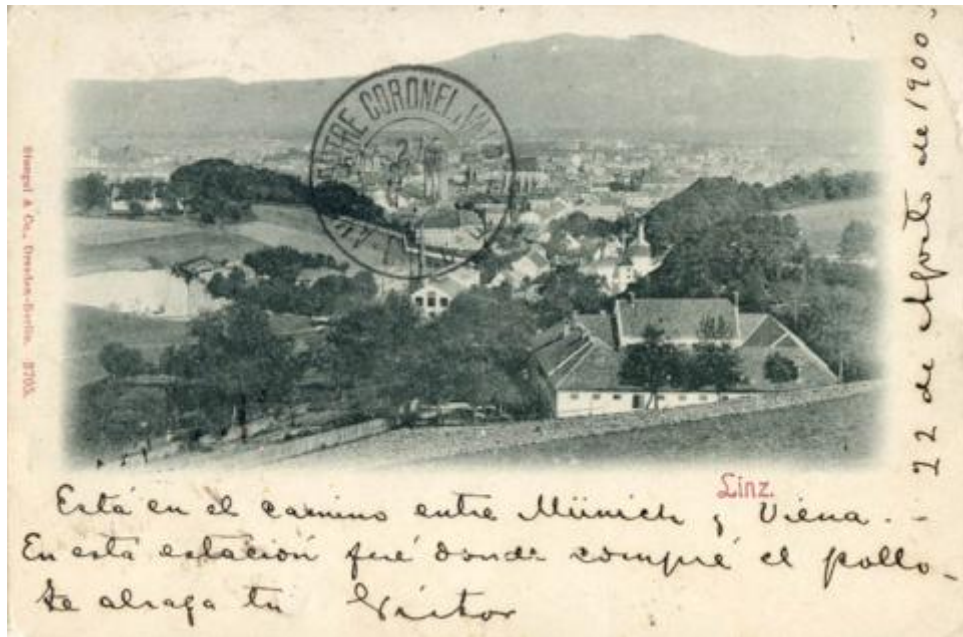 Stengel & Co., Dresden-Berlin. 3705.
CORONEL
Linz.
22 de Agosto de 1900.
Está en el camino entre Münich y Viena. -
En esta estación fué donde compré el pollo -
te abraga tu Victor